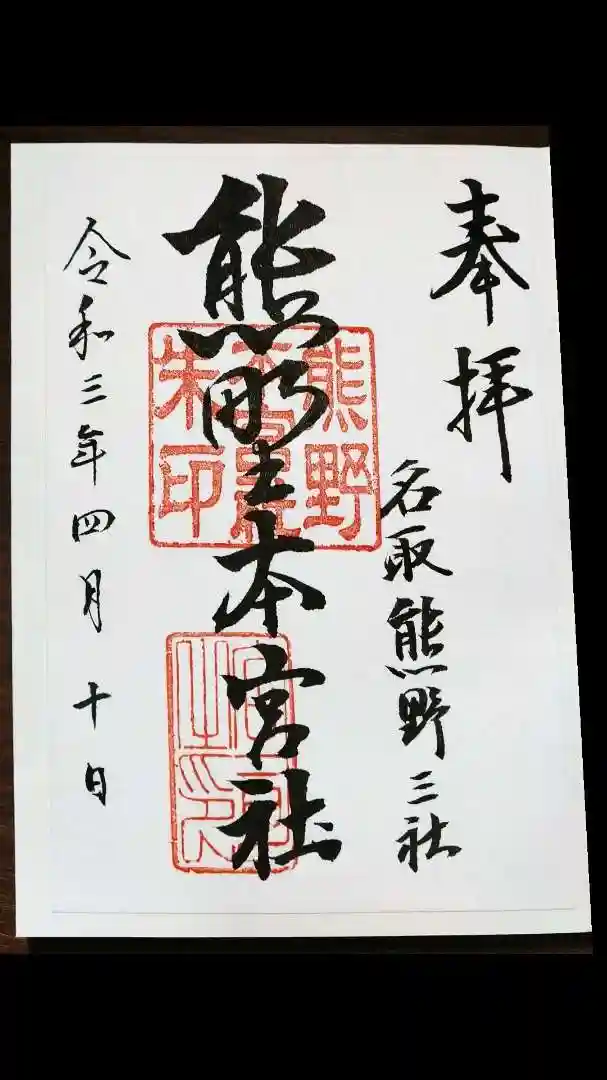 奉拝
名取熊野三社
熊野本宮社
熊野
朱印
令和三年四月十日